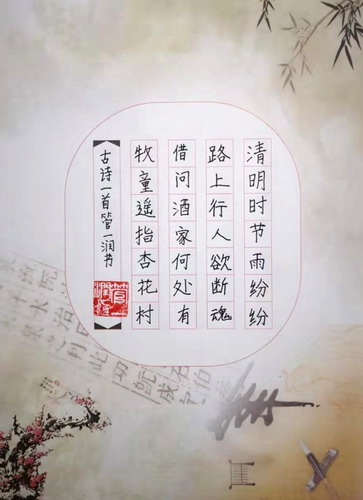 清明时节雨纷纷
路上行人欲断魂
借问酒家何处有
牧童遥指杏花村
古诗一首管一润书